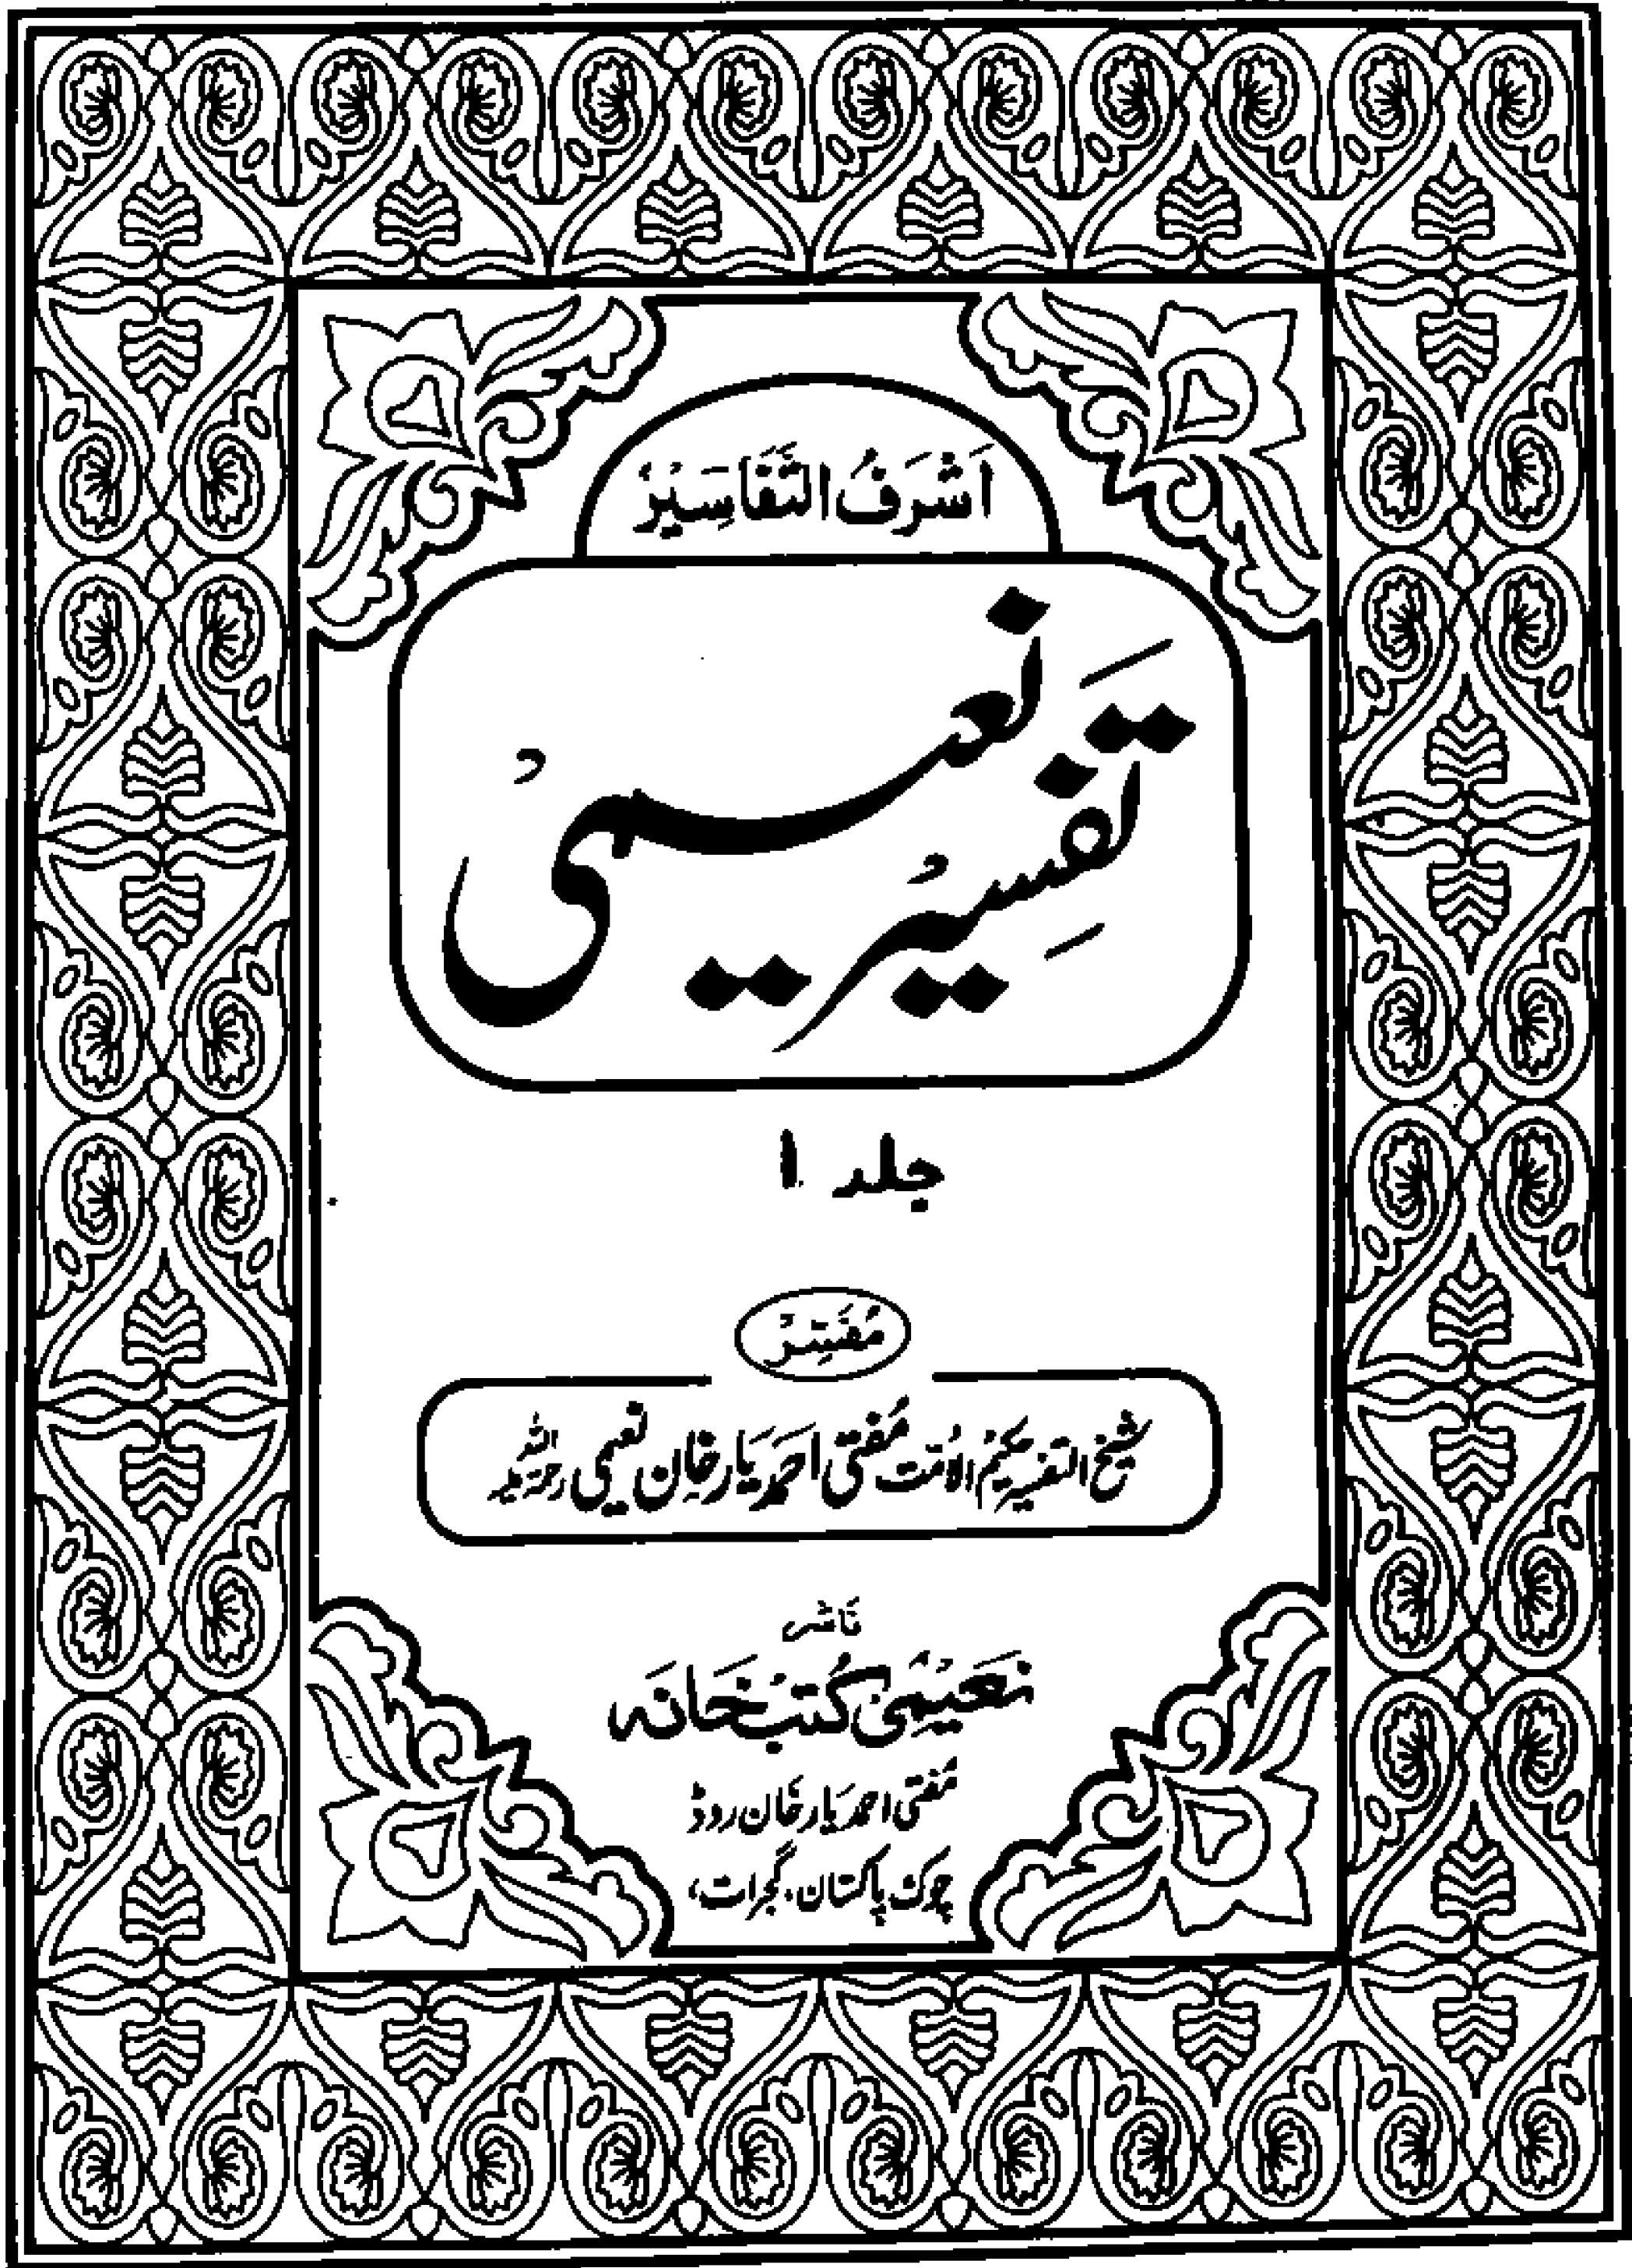 اَشْرَفُ التَّفَاسِيْرْ
تَفسِیْر نعیمیْ
جلد ۱
مُفَسِّرْ
شیخ التفسیر حکیمُ الاُمّت مُفتی احمَد یَار خَان نعیمی رحمۃ اللہ علیہ
ناشر
نَعِیْمیْ کُتبْ خَانَہ
مُفتی احمد یَار خَان روڈ
چوک پاکستان، گجرات،